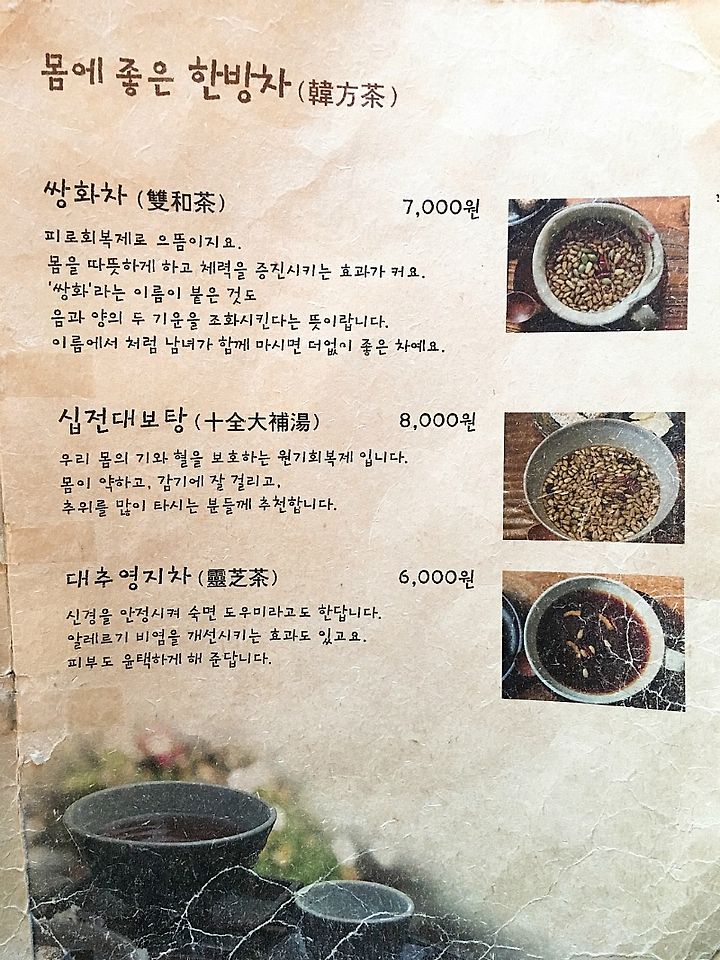 몸에 좋은 한방차 (韓方茶)
쌍화차 (雙和茶) 7,000원
피로회복제로 으뜸이지요.
몸을 따뜻하게 하고 체력을 증진시키는 효과가 커요.
'쌍화'라는 이름이 붙은 것도
음과 양의 두 기운을 조화시킨다는 뜻이랍니다.
이름에서 처럼 남녀가 함께 마시면 더없이 좋은 차예요.
십전대보탕 (十全大補湯) 8,000원
우리 몸의 기와 혈을 보호하는 원기회복제 입니다.
몸이 약하고, 감기에 잘 걸리고,
추위를 많이 타시는 분들께 추천합니다.
대추영지차 (靈芝茶) 6,000원
신경을 안정시켜 숙면 도우미라고도 한답니다.
알레르기 비염을 개선시키는 효과도 있고요.
피부도 윤택하게 해 준답니다.